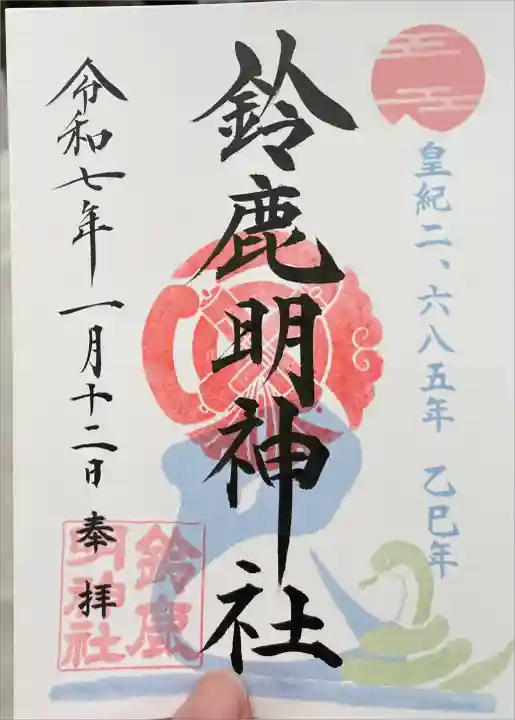 皇紀二、六八五年 乙巳年
鈴鹿明神社
令和七年一月十二日 奉拝
鈴鹿
明神社